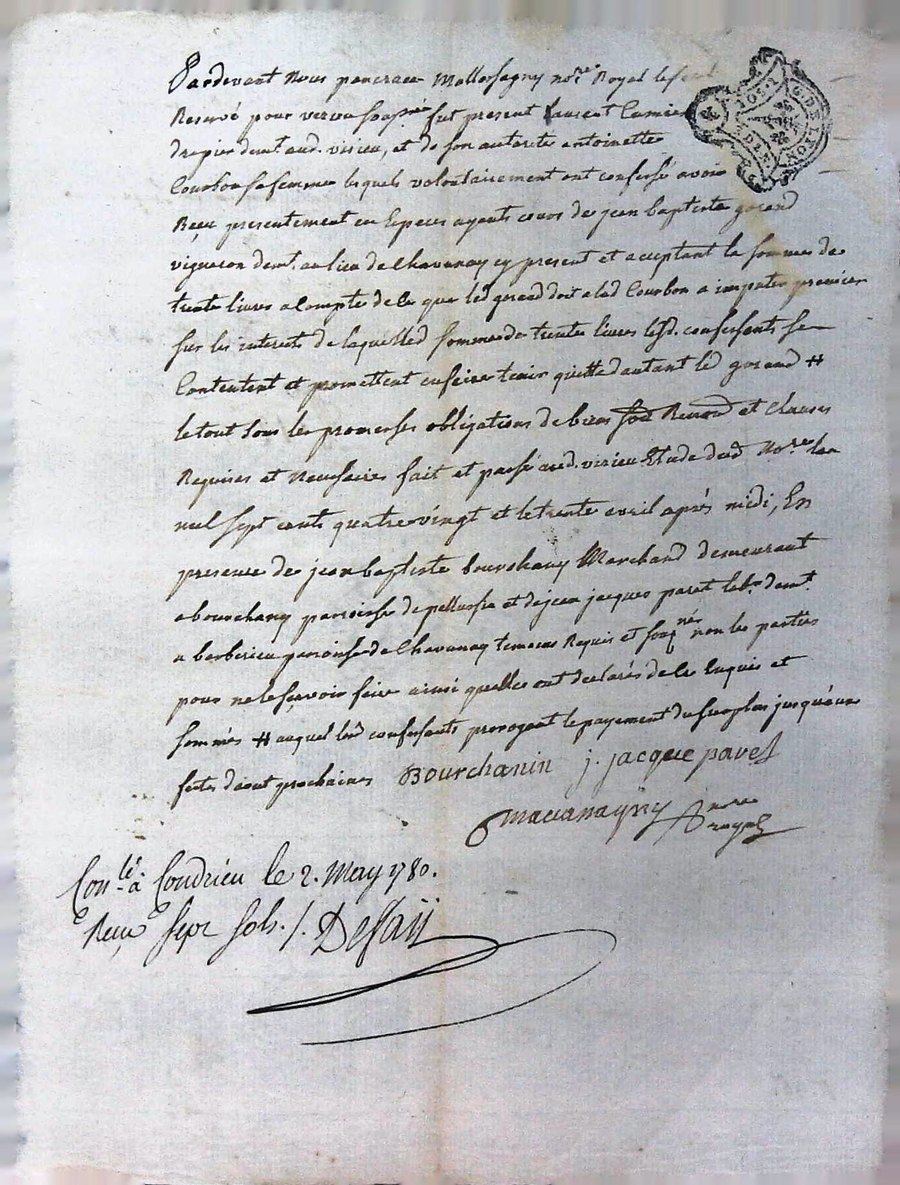 Pardevant Nous pancrace no.re Royal
Reservé pour verieu soussigné fut present Laurent
drapier demt. aud. virieu, et de son autorité antoinette
Courbon sa femme lesquels volontairement ont confessé avoir
Reçu presentement en Especes ayants cours de jean baptiste gerand
vigneron demt. au lieu de Chavanay cy present et acceptant la somme de
trente livres a Compte de ce que led gerand doit a lad Courbon a imputer premier
sur les interets de laquelled somme de trente livres lesd. confessants se
Contentent et promettent en faire tenir quitte d'autant led gerand #
le tout sous les promesses obligations de biens Renond et clauses
Requises et Necessaires fait et passé aud. virieu Etude dud No.re lan
mil sept cents quatre vingt et le trente avril après midi, En
presence de jean baptiste bourchany Marchand demeurant
a bourchany paroisse de pellussin et de jean jacques paret lab.r demt.
a berberieu paroisse de Chavanay temoins Requis et soussignés non les parties
pour ne le sçavoir faire ainsi quelles ont declarés de ce Enquis et
sommés # auquel led confessants prorogent le payement du surplus jusqu'aux
fetes daout prochaines Bourchanin j. jacque paret
no.re royal
Con.lé a Condrieu le 2. May 1780.
Reçu sept sols. /. Defaÿ
G. DE LYON